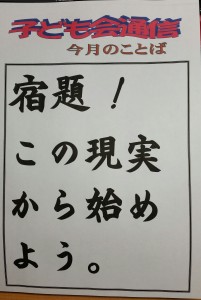 子ども会通信
今月のことば
宿題！
この現実
から始め
よう。